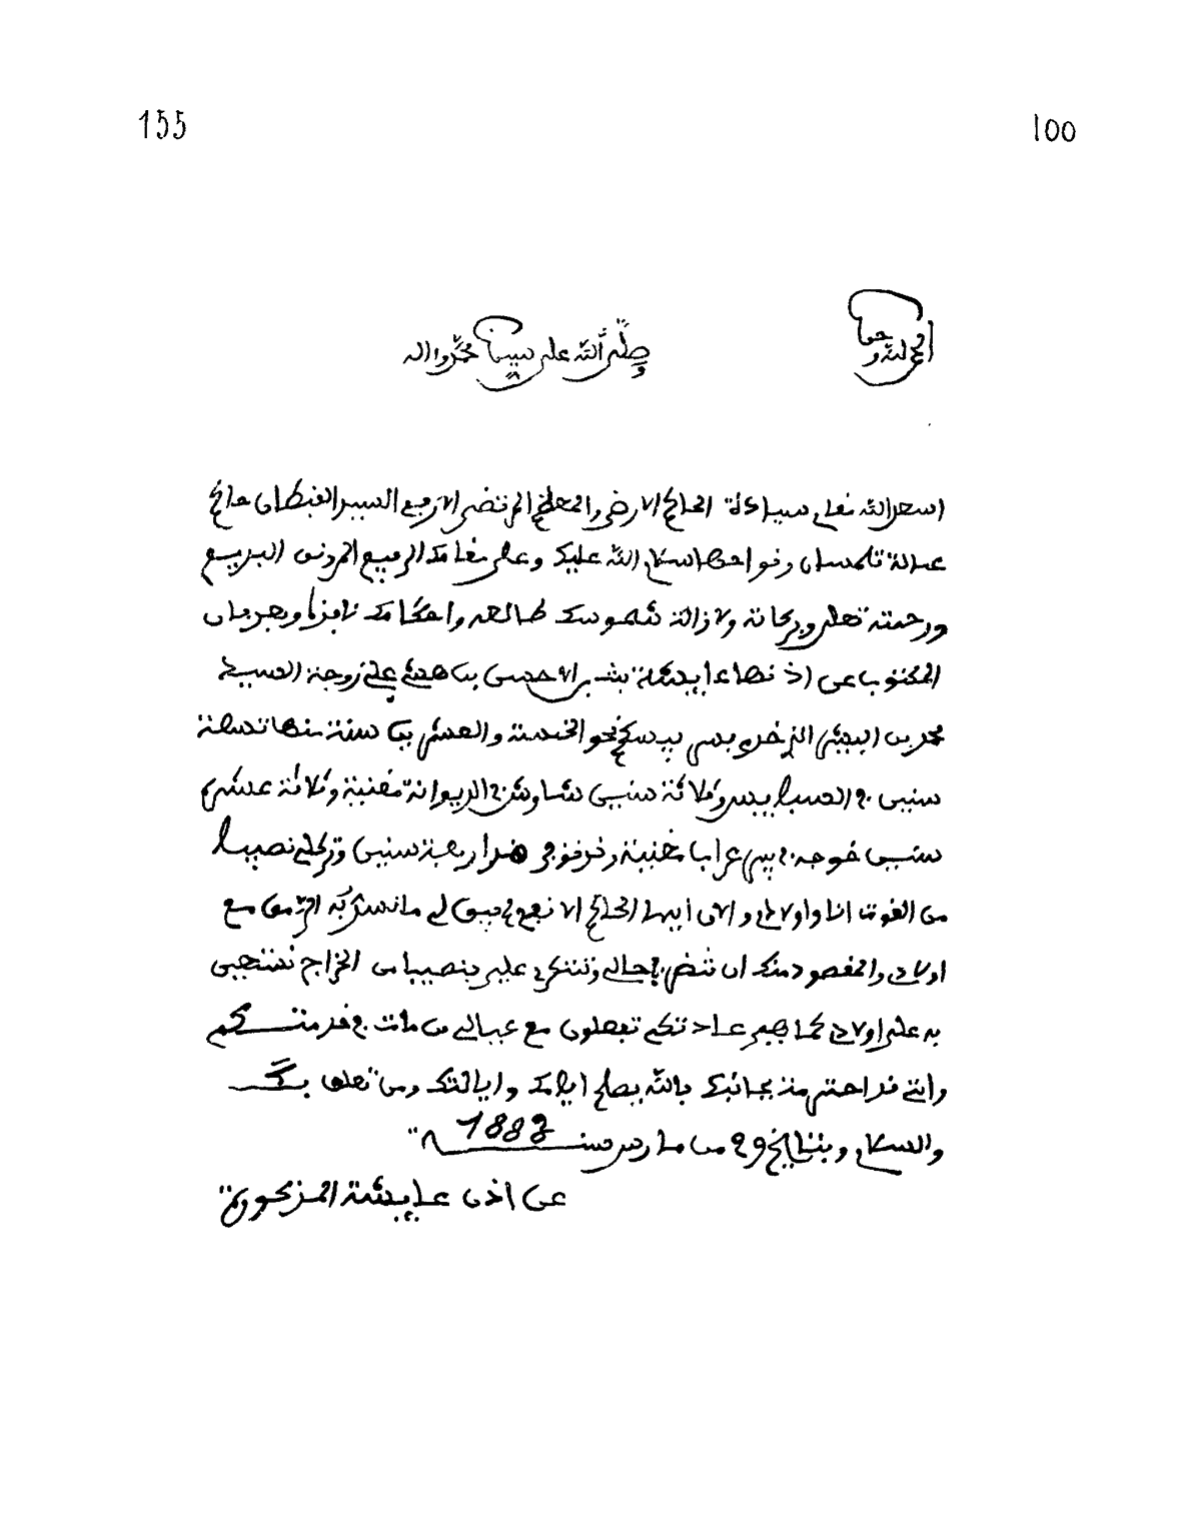 155
100
الحمد لله وحده
وصلى الله على سيدنا محمد واله
اسعد الله تعلى سيادة الحاكم الارضى والمعظم المرتضى الارفع السيد القبطان حاكم
عمالة تلمسان ونواحها سلام الله عليك وعلى مقامك الرفيع المرونق البديع
ورحمته تعلى وبركاته ولا زالت شموسك طالعه واحكامك نافذا وبعد فان
المكتوب عن اذنها عايشة بنت الاحسن بن علي زوجة السيد
محمد بن البخدم بيسكم نحو الخمسة والعشرين سنة منها تسعة
سنين في الصبايس وثلاثة سنين شاوش في الديوانة مغنية وثلاثة عشر
سنين خوجه في بير عرب مغنية وارعة سنين وترك لي نصيبا
من القوت انا واولادي والان ايها الحاكم الانجع لم يبق لي ما نسترك به الزمن مع
اولادي والمقصود منك ان تنظر في حالي وتشكر علي بنصيبا من الخراج نستعين
به على اولادي كما هي عادتكم تفعلون مع عيالي من مات في خدمتكم
وانني قد احتميت بجانبك بالله يصلح ايامك وايالتك ومن تعلق بك
والسلام وبتاريخ 29 من مارس سنة 1888
عن اذن عايشة المزبورة